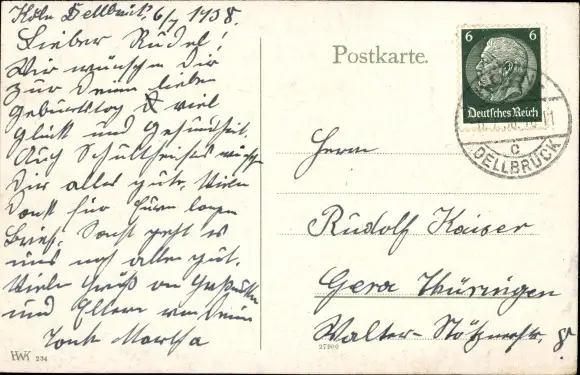 Köln Dellbrück, 6/7 1938.
Lieber Rudel!
Wir wünschen Dir
zur Deinem lieben
Geburtstag & viel
Glück und Gesundheit.
Auch Schultheises wünschen
Dir alles gute. Vielen
Dank für Euren langen
Brief. Sonst geht es
uns noch allen gut.
Viele Grüße an
und Eltern von Deine
Tante Martha
HWK 234
Postkarte.
6 6
Deutsches Reich
KÖLN
DELLBRÜCK
c
Herrn
Rudolf Kaiser
Gera Thüringen
Walter-
27200